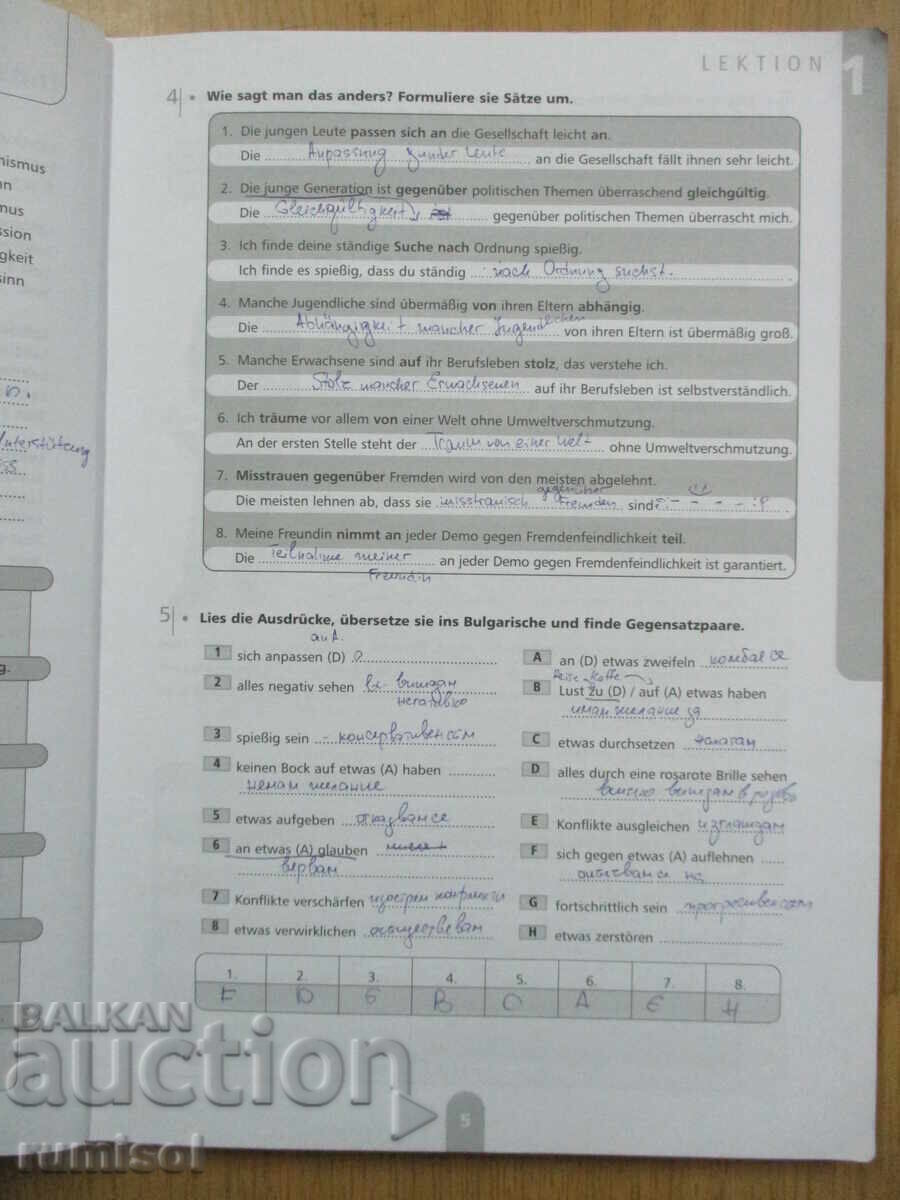 LEKTION 1
nismus
n
mus
sion
gkeit
sinn
4 • Wie sagt man das anders? Formuliere sie Sätze um.
1. Die jungen Leute passen sich an die Gesellschaft leicht an.
Die Anpassung junder Leute an die Gesellschaft fällt ihnen sehr leicht.
2. Die junge Generation ist gegenüber politischen Themen überraschend gleichgültig.
Die Gleichgültigkeit gegenüber politischen Themen überrascht mich.
3. Ich finde deine ständige Suche nach Ordnung spießig.
Ich finde es spießig, dass du ständig nach Ordnung suchst.
4. Manche Jugendliche sind übermäßig von ihren Eltern abhängig.
Die Abhängigkeit mancher Jugendlichen von ihren Eltern ist übermäßig groß.
5. Manche Erwachsene sind auf ihr Berufsleben stolz, das verstehe ich.
Der Stolz mancher Erwachsenen auf ihr Berufsleben ist selbstverständlich.
6. Ich träume vor allem von einer Welt ohne Umweltverschmutzung.
An der ersten Stelle steht der Traum von einer Welt ohne Umweltverschmutzung.
7. Misstrauen gegenüber Fremden wird von den meisten abgelehnt.
gegenüber
Die meisten lehnen ab, dass sie misstrauisch Fremden sind
8. Meine Freundin nimmt an jeder Demo gegen Fremdenfeindlichkeit teil.
Die Teilnahme meiner an jeder Demo gegen Fremdenfeindlichkeit ist garantiert.
Freundin
Unterstützung
g.
5 • Lies die Ausdrücke, übersetze sie ins Bulgarische und finde Gegensatzpaare.
an A.
1 sich anpassen (D)
2 alles negativ sehen виждам
негативно
3 spießig sein - консервативен съм
4 keinen Bock auf etwas (A) haben
нямам желание
5 etwas aufgeben отказвам се
6 an etwas (A) glauben
вярвам
7 Konflikte verschärfen изострям конфликти
8 etwas verwirklichen осъществявам
A an (D) etwas zweifeln
Reise Kaffe
B Lust zu (D) / auf (A) etwas haben
имам желание за
C etwas durchsetzen налагам
D alles durch eine rosarote Brille sehen
всичко виждам в розово
E Konflikte ausgleichen изглаждам
F sich gegen etwas (A) auflehnen
G fortschrittlich sein прогресивен съм
H etwas zerstören
1. 2. 3. 4. 5. 6. 7. 8.
F D G B C A E H
5
BALKAN
auction
rumisol